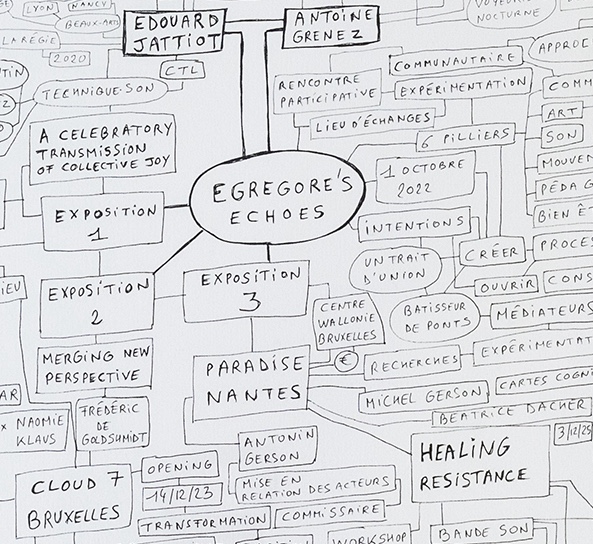 LYON
NANCY
BEAUX-ART
LA RÉGIE
2020
EDOUARD
JATTIOT
ANTOINE
GRENEZ
NOCTURNE
CTL
TECHNIQUE-SON
RENCONTRE
PARTICIPATIVE
COMMUNAUTAIRE
EXPÉRIMENTATION
APPROC
COMM
LIEU D'ÉCHANGES
6 PILLIERS
ART
SON
MOUVEM
PÉDAG
BIEN ÊT
A CELEBRATORY
TRANSMISSION
OF COLLECTIVE JOY
EGREGORE'S
ECHOES
1 OCTOBRE
2022
EXPOSITION
1
INTENTIONS
UN TRAIT
D'UNION
CRÉER
PROCES
OUVRIR
CONS
EXPOSITION
2
EXPOSITION
3
CENTRE
WALLONIE
BRUXELLES
BATISSEUR
DE PONTS
MÉDIATEURS
€
RECHERCHES
EXPÉRIMENTAT
MERGING NEW
PERSPECTIVE
PARADISE
NANTES
MICHEL GERSON
CARTES COGNI
BEATRICE DACHER
NAOMIE
KLAUS
FRÉDÉRIC
DE
GOLDSHMIDT
ANTONIN
GERSON
HEALING
RESISTANCE
3/12/25
CLOUD 7
BRUXELLES
OPENING
14/12/23
TRANSFORMATION
MISE EN
RELATION DES ACTEURS
COMMISSAIRE
WORKSHOP
BANDE SON